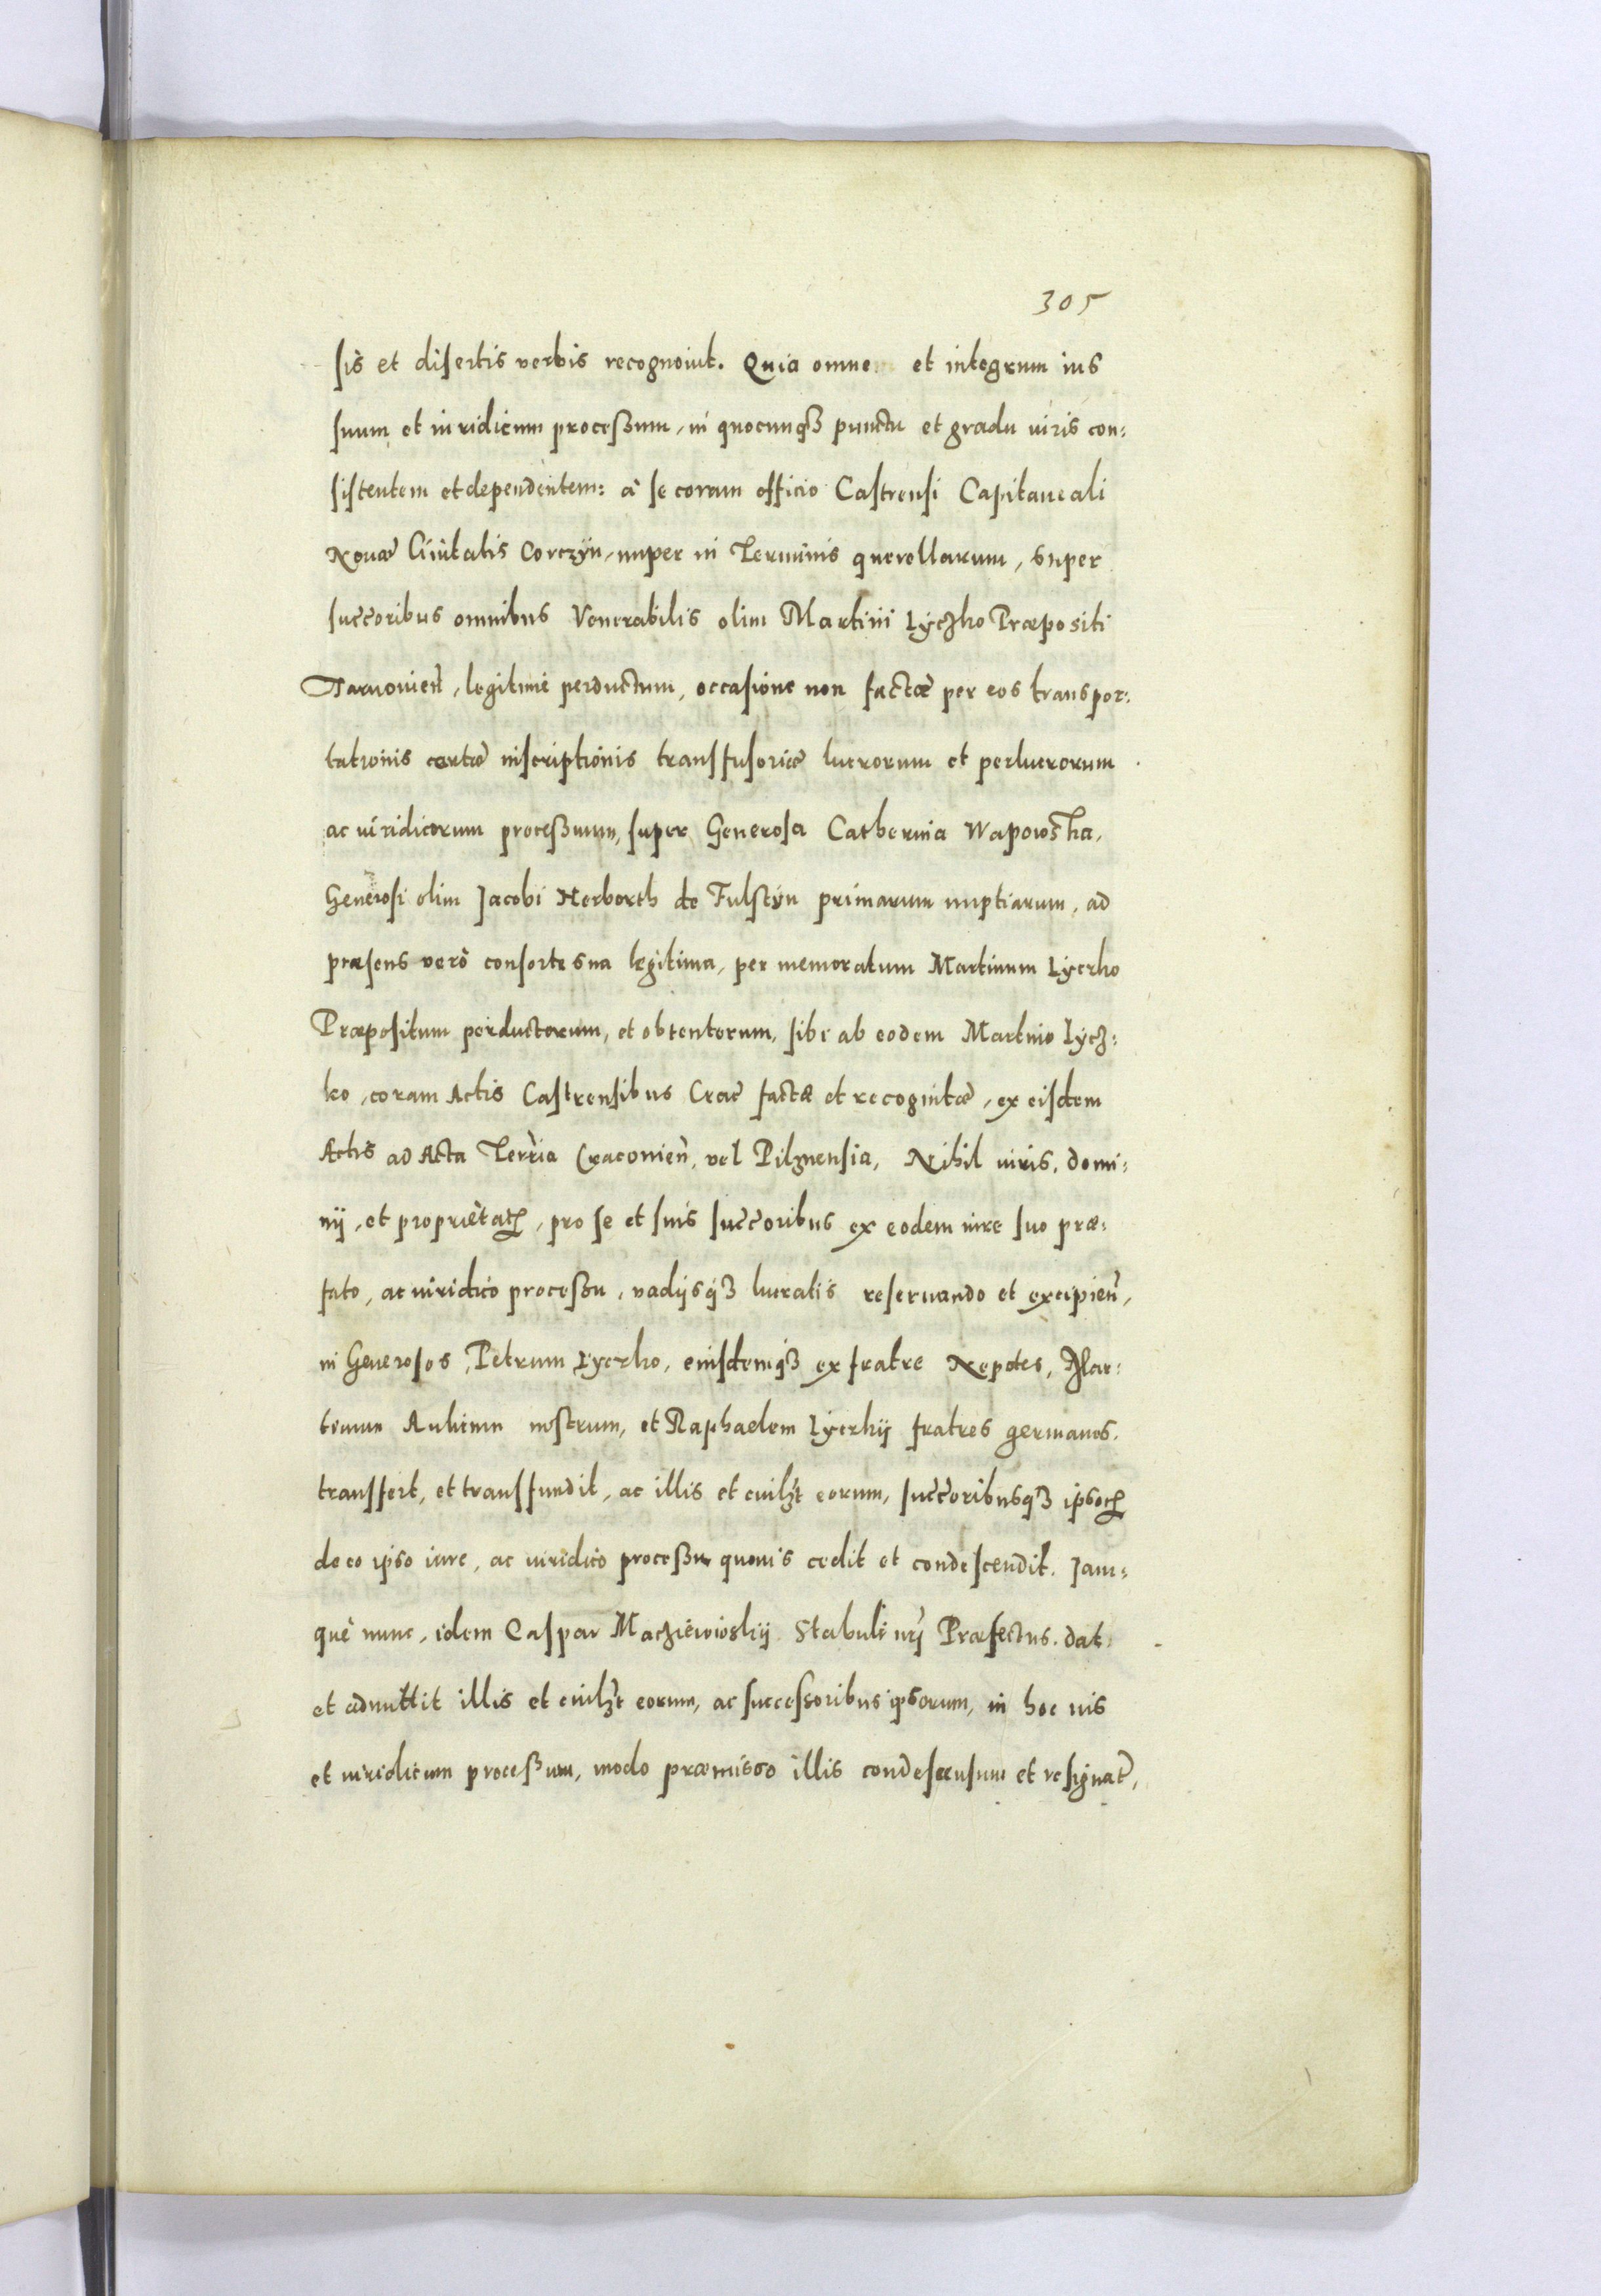 305
sis et disertis verbis recognoivt. Quia omne et integrum ius
suum et iuridicum processum, in quocunq3 punctu et gradu iuris con:
sistentem et dependentem: à se coram officio Castrensi Capitaneali
Nouæ Ciuitatis Corczÿn, nuper in Terminis querellarum, super
succoribus omnibus Venerabilis olim Martini Lyczko Præpositi
Tarnouien̄, legitimè perductum, occasione non factæ per eos transpor:
tationis certæ inscriptionis transfusoriæ lucrorum et perlucrorum
ac iuridicorum processuum, super Generosa Catherina Wapowska,
Generosi olim Jacobi Herborth de Fulstÿn primarum nuptiarum, ad
præsens verò consorte sua legitima, per memoratum Martinum Lyczko
Præpositum perductorum, et obtentorum, sibi ab eodem Martino Lycz:
ko, coram Actis Castrensibus Crac̄ factæ et recognitæ, ex eisdem
Actis ad Acta Terr̄ia Cracouien̄, vel Pilznensia, Nihil iuris, domi:
nij, et proprietatꝭ, pro se et suis succoribus ex eodem iure suo præ:
fato, ac iuridico processu, vadijsq3 lucratis reseruando et excipien̄,
in Generosos, Petrum Lyczko, eiusdemq3 ex fratre Nepotes, Mar:
tinum Aulicum nostrum, et Raphaelem Lyczkij fratres germanos,
transfert, et transfundit, ac illis et cuilƷt eorum, succoribusq3 ipsoꝝ
de eo ipso iure, ac iuridico processu quouis cedit et condescendit. Jam:
què nunc, idem Caspar Maczieiowskij Stabuli nrj Præfectus, dat
et admittit illis et cuilƷt eorum, ac successoribus ipsorum, in hoc ius
et iuridicum processum, modo præmisso illis condescensum et resignat̄,